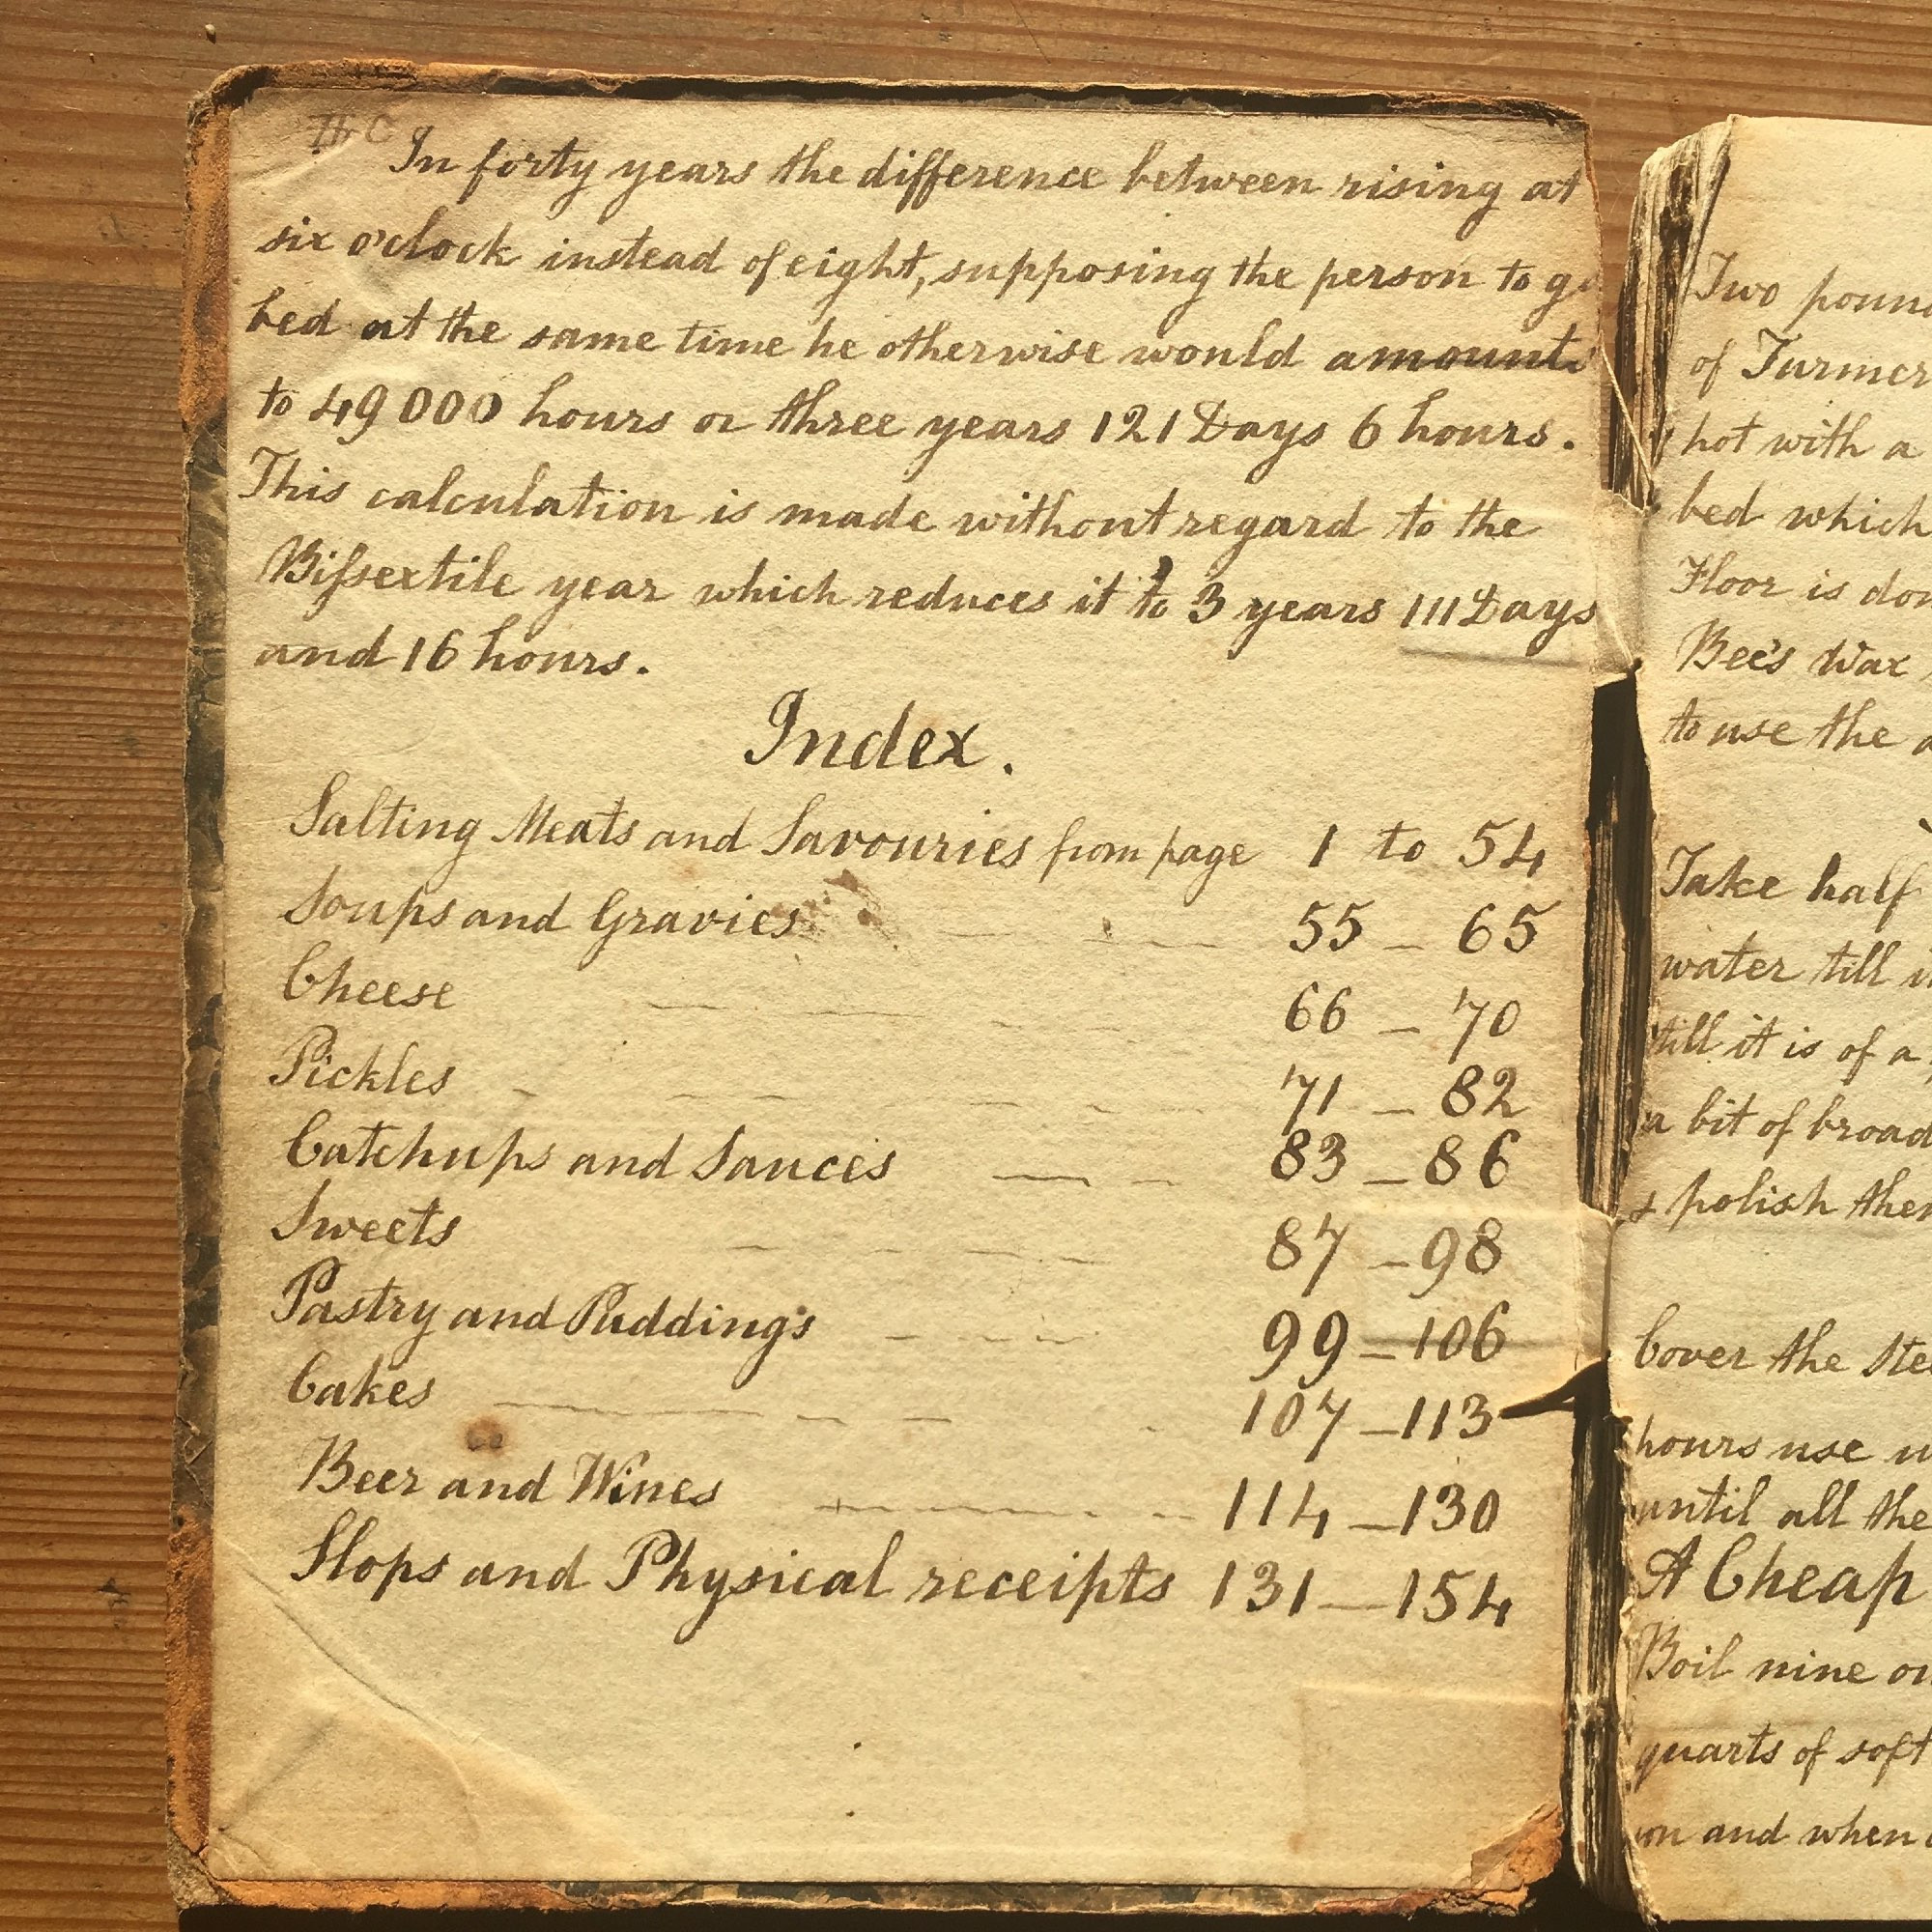 In forty years the difference between rising at
six o'clock instead of eight, supposing the person to
bed at the same time he otherwise would amounts
to 49000 hours or three years 121 Days 6 hours.
This calculation is made without regard to the
Bifsextile year which reduces it to 3 years 111 Days
and 16 hours.
Index.
Salting Meats and Savouries from page 1 to 54
Soups and Gravies 55 – 65
Cheese 66 – 70
Pickles 71 – 82
Catchups and Sauces 83 – 86
Sweets 87 – 98
Pastry and Puddings 99 – 106
Cakes 107 – 113
Beer and Wines 114 – 130
Slops and Physical receipts 131 – 154
Two
of
hot with a
bed which
Floor is
Bee's Wax
to use the
Take half
water till
till it is of a
a bit of
polish
Cover the
hours use
until all the
A Cheap
Boil nine
quarts of soft
and when